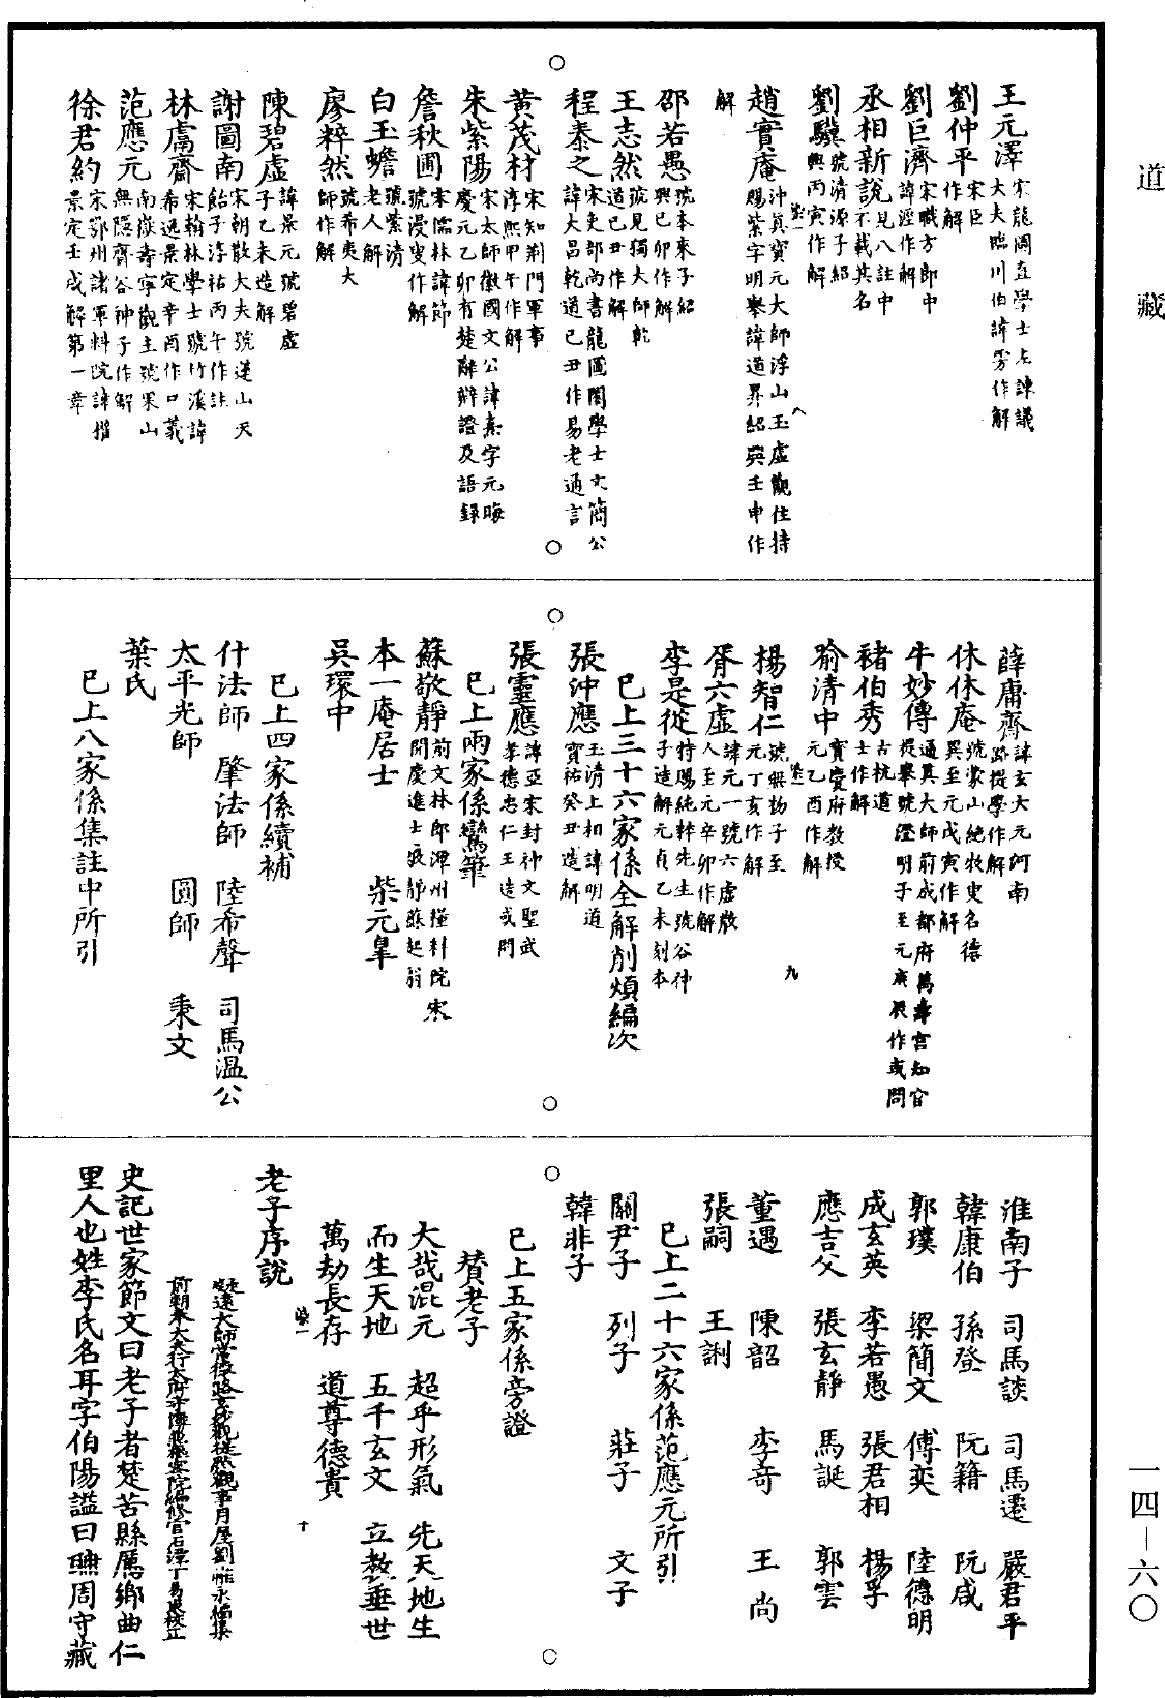 道藏
王元澤 宋龍圖直學士左諫議大夫臨川伯諱雱作解
劉仲平 宋臣作解
劉巨濟 宋職方郎中諱涇作解
丞相新說 見八註中不載其名
劉驥 號清源子紹興丙寅作解
趙實庵 沖真寶元大師浮山玉虛觀住持賜紫字明舉諱道昇紹興壬申作
解
邵若愚 號本來子紹興己卯作解
王志然 號見獨大師乾道己丑作解
程泰之 宋吏部尚書龍圖閣學士文簡公諱大昌乾道己丑作易老通言
黃茂材 宋知荆門軍事淳熙甲午作解
朱紫陽 宋太師徽國文公諱熹字元晦慶元乙卯有楚辭辯證及語錄
詹秋圃 宋儒林諱節號漫叟作解
白玉蟾 號紫清老人解
廖粹然 號希夷大師作解
陳碧虛 諱景元號碧虛子乙未造解
謝圖南 宋朝散大夫號蓬山天飴子淳祐丙午作註
林鬳齋 宋翰林學士號竹溪諱希逸景定辛酉作口義
范應元 南嶽壽寧觀主號果山無隱齋谷神子作解
徐君約 宋鄂州諸軍料院諱揩景定壬戌解第一章
薛庸齋 諱玄大元河南路提學作解
休休庵 號蒙山絶牧叟名德異至元戊寅作解
牛妙傳 通真大師前成都府萬壽宫知宫提舉號澄明子至元庚辰作或問
褚伯秀 古杭道士作解
喻清中 寶慶府教授元乙酉作解
楊智仁 號無物子至元丁亥作解
胥六虛 諱元一號六虛散人至元辛卯作解
李是從 特賜純粹先生號谷神子造解元貞乙未刻本
已上三十六家係全解削煩編次
張沖應 玉清上相諱明道寶祐癸丑造解
張靈應 諱亞宋封神文聖武孝德忠仁王造或問
已上兩家係鸞筆
蘇敬靜 前文林郎潭州糧料院宋開慶進士
本一庵居士 柴元皐
吳環中
已上四家係續補
什法師 肇法師 陸希聲 司馬溫公
太平光師 圓師 秉文
葉氏
已上八家係集註中所引
淮南子 司馬談 司馬遷 嚴君平
韓康伯 孫登 阮籍 阮咸
郭璞 梁簡文 傅奕 陸德明
成玄英 李若愚 張君相 楊孚
應吉父 張玄靜 馬誕 郭雲
董遇 陳韶 李奇 王尚
張嗣 王誗
已上二十六家係范應元所引
關尹子 列子 莊子 文子
韓非子
已上五家係旁證
贊老子
大哉混元 超乎形氣 先天地生
而生天地 五千玄文 立教垂世
萬劫長存 道尊德貴
老子序說
史記世家節文曰老子者楚苦縣厲鄉曲仁
里人也姓李氏名耳字伯陽謚曰聃周守藏
一四—六〇